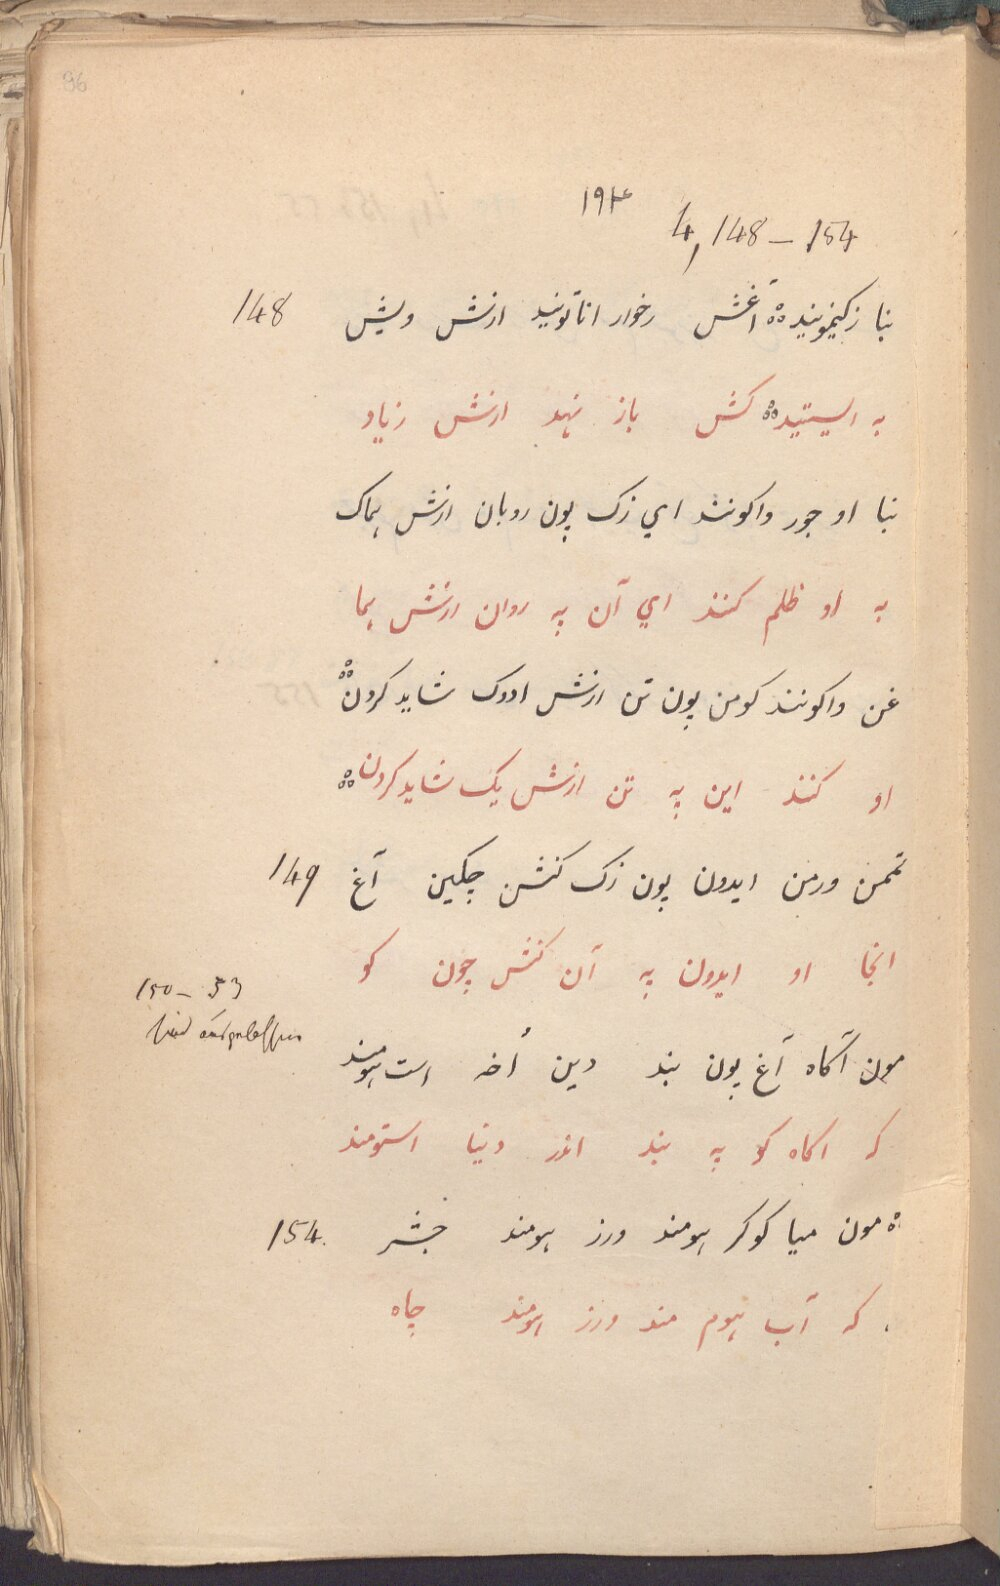 96
۱۹۴
4, 148 – 154
148
بنا زکیخونیند آغش رخوار اناتونید ازش ویش
به ایستید کش باز نهد ازش زیاد
بنا او جور واکونند ای زک پون روبان ازش هماک
به او ظلم کنند ای آن په روان ازش هما
غن واکونند کومن پون تن ازش ادوک شاید کردن
او کنند این په تن ازش یک شاید کردن
149
تمن ورمن ایدون پون زک کنشن چکین آغ
انجا او ایدون په آن کنش چون کو
150 – 53
sind ausgelassen
مون آکاه آغ پون بند دین اُخه است هومند
که اکاه کو په بند اندر دنیا استومند
154.
مون میا کوکر هومند ورز هومند خشر
که آب هوم مند ورز هومند چاه